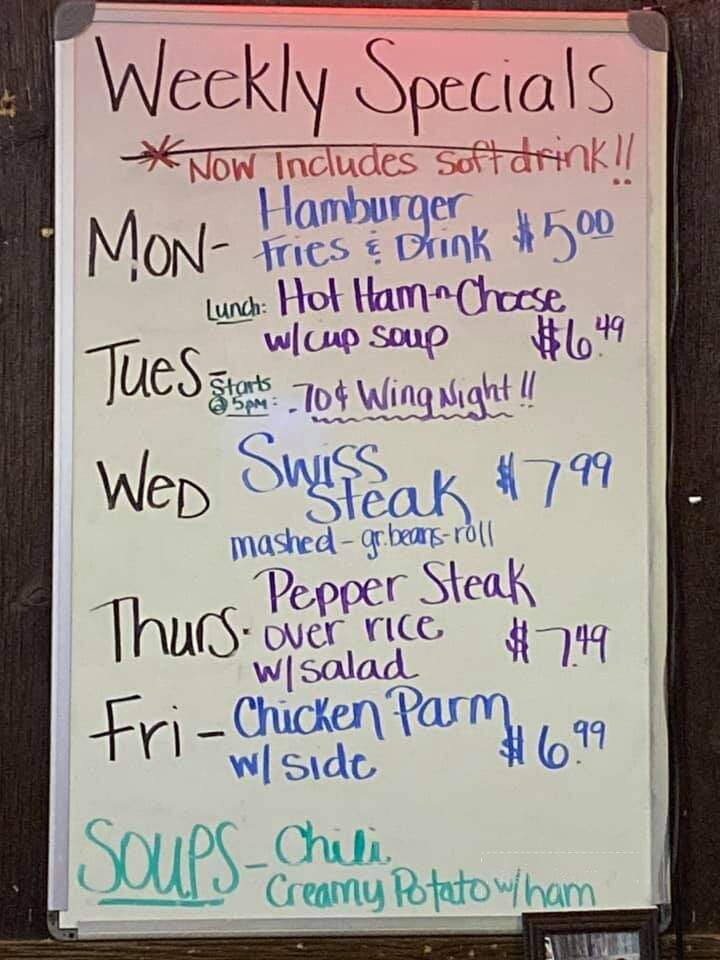 Weekly Specials
* Now Includes Soft drink!!
Mon- Hamburger
fries & Drink $5.00
Lunch: Hot Ham-n-Cheese
w/cup soup $6.49
Tues-
Starts @ 5PM: .70¢ Wing Night!!
Wed Swiss
Steak $7.99
mashed - gr.beans-roll
Thurs- Pepper Steak
over rice
w/salad $7.49
Fri - Chicken Parm
w/ side $6.99
Soups - Chili
Creamy Potato w/ham